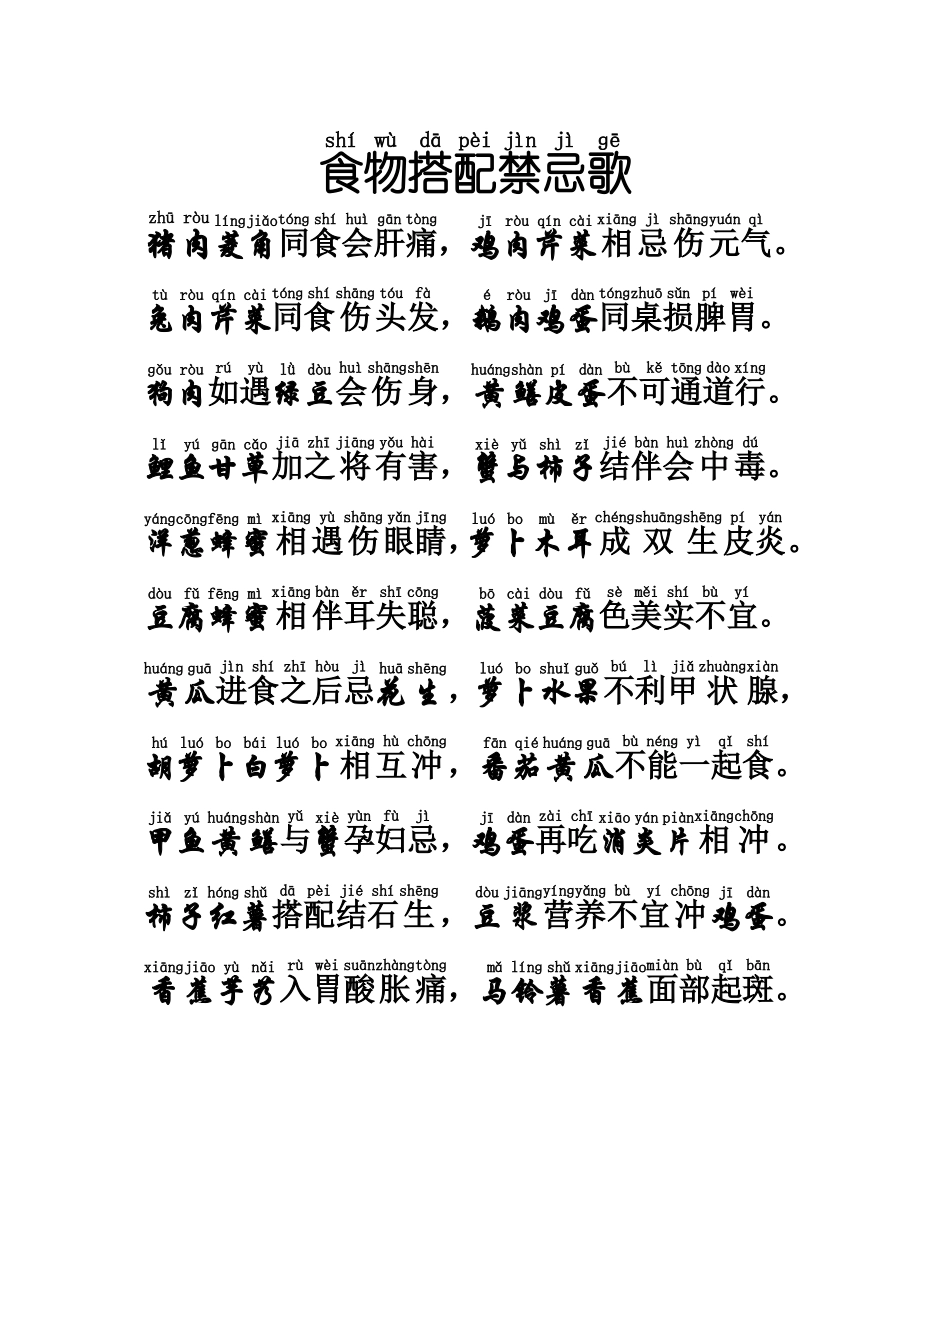 shí wù dā pèi jìn jì gē
食物搭配禁忌歌
zhū ròu língjiǎotóng shí huì gān tòng jī ròu qín cài xiāng jì shāngyuán qì
猪肉菱角同食会肝痛，鸡肉芹菜相忌伤元气。
tù ròu qín cài tóng shí shāng tóu fà é ròu jī dàn tóngzhuō sǔn pí wèi
兔肉芹菜同食伤头发，鹅肉鸡蛋同桌损脾胃。
gǒu ròu rú yù lǜ dòu huì shāngshēn huángshàn pí dàn bù kě tōng dào xíng
狗肉如遇绿豆会伤身，黄鳝皮蛋不可通道行。
lǐ yú gān cǎo jiā zhī jiāng yǒu hài xiè yǔ shì zǐ jié bàn huì zhòng dú
鲤鱼甘草加之将有害，蟹与柿子结伴会中毒。
yángcōngfēng mì xiāng yù shāng yǎn jīng luó bo mù ěr chéngshuāngshēng pí yán
洋葱蜂蜜相遇伤眼睛，萝卜木耳成双生皮炎。
dòu fǔ fēng mì xiāng bàn ěr shī cōng bō cài dòu fǔ sè měi shí bù yí
豆腐蜂蜜相伴耳失聪，菠菜豆腐色美实不宜。
huáng guā jìn shí zhī hòu jì huā shēng luó bo shuǐ guǒ bú lì jiǎ zhuàngxiàn
黄瓜进食之后忌花生，萝卜水果不利甲状腺，
hú luó bo bái luó bo xiāng hù chōng fān qié huáng guā bù néng yì qǐ shí
胡萝卜白萝卜相互冲，番茄黄瓜不能一起食。
jiǎ yú huángshàn yǔ xiè yùn fù jì jī dàn zài chī xiāo yán piàn xiāngchōng
甲鱼黄鳝与蟹孕妇忌，鸡蛋再吃消炎片相冲。
shì zǐ hóng shǔ dā pèi jié shí shēng dòu jiāngyíngyǎng bù yí chōng jī dàn
柿子红薯搭配结石生，豆浆营养不宜冲鸡蛋。
xiāngjiāo yù nǎi rù wèi suānzhàngtòng mǎ líng shǔ xiāngjiāo miàn bù qǐ bān
香蕉芋艿入胃酸胀痛，马铃薯香蕉面部起斑。